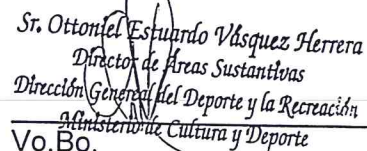 Sr. Ottoniel Estuardo Vásquez Herrera
Director de Áreas Sustantivas
Dirección General del Deporte y la Recreación
Ministerio de Cultura y Deporte
Vo.Bo.